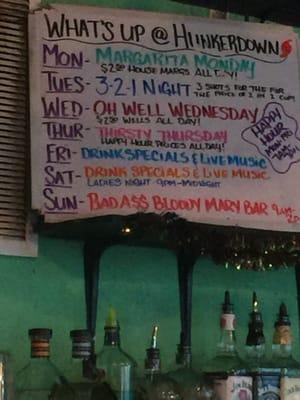 WHAT'S UP @ HUNKERDOWN
MON- MARGARITA MONDAY
HOUSE MARGS ALL DAY!
TUES- 3·2·1 NIGHT 3 SHOTS FOR THE
THE PRICE OF 2 IN 1 CUP!
WED- OH WELL WEDNESDAY
WELLS ALL DAY!
THUR- THIRSTY THURSDAY
HAPPY HOUR PRICES ALL DAY!
FRI- DRINK SPECIALS & LIVE MUSIC
SAT- DRINK SPECIALS & LIVE MUSIC
LADIES NIGHT 9PM-MIDNIGHT
SUN- BADA$$ BLOODY MARY BAR 9AM-
HAPPY
HOUR
MON-FRI